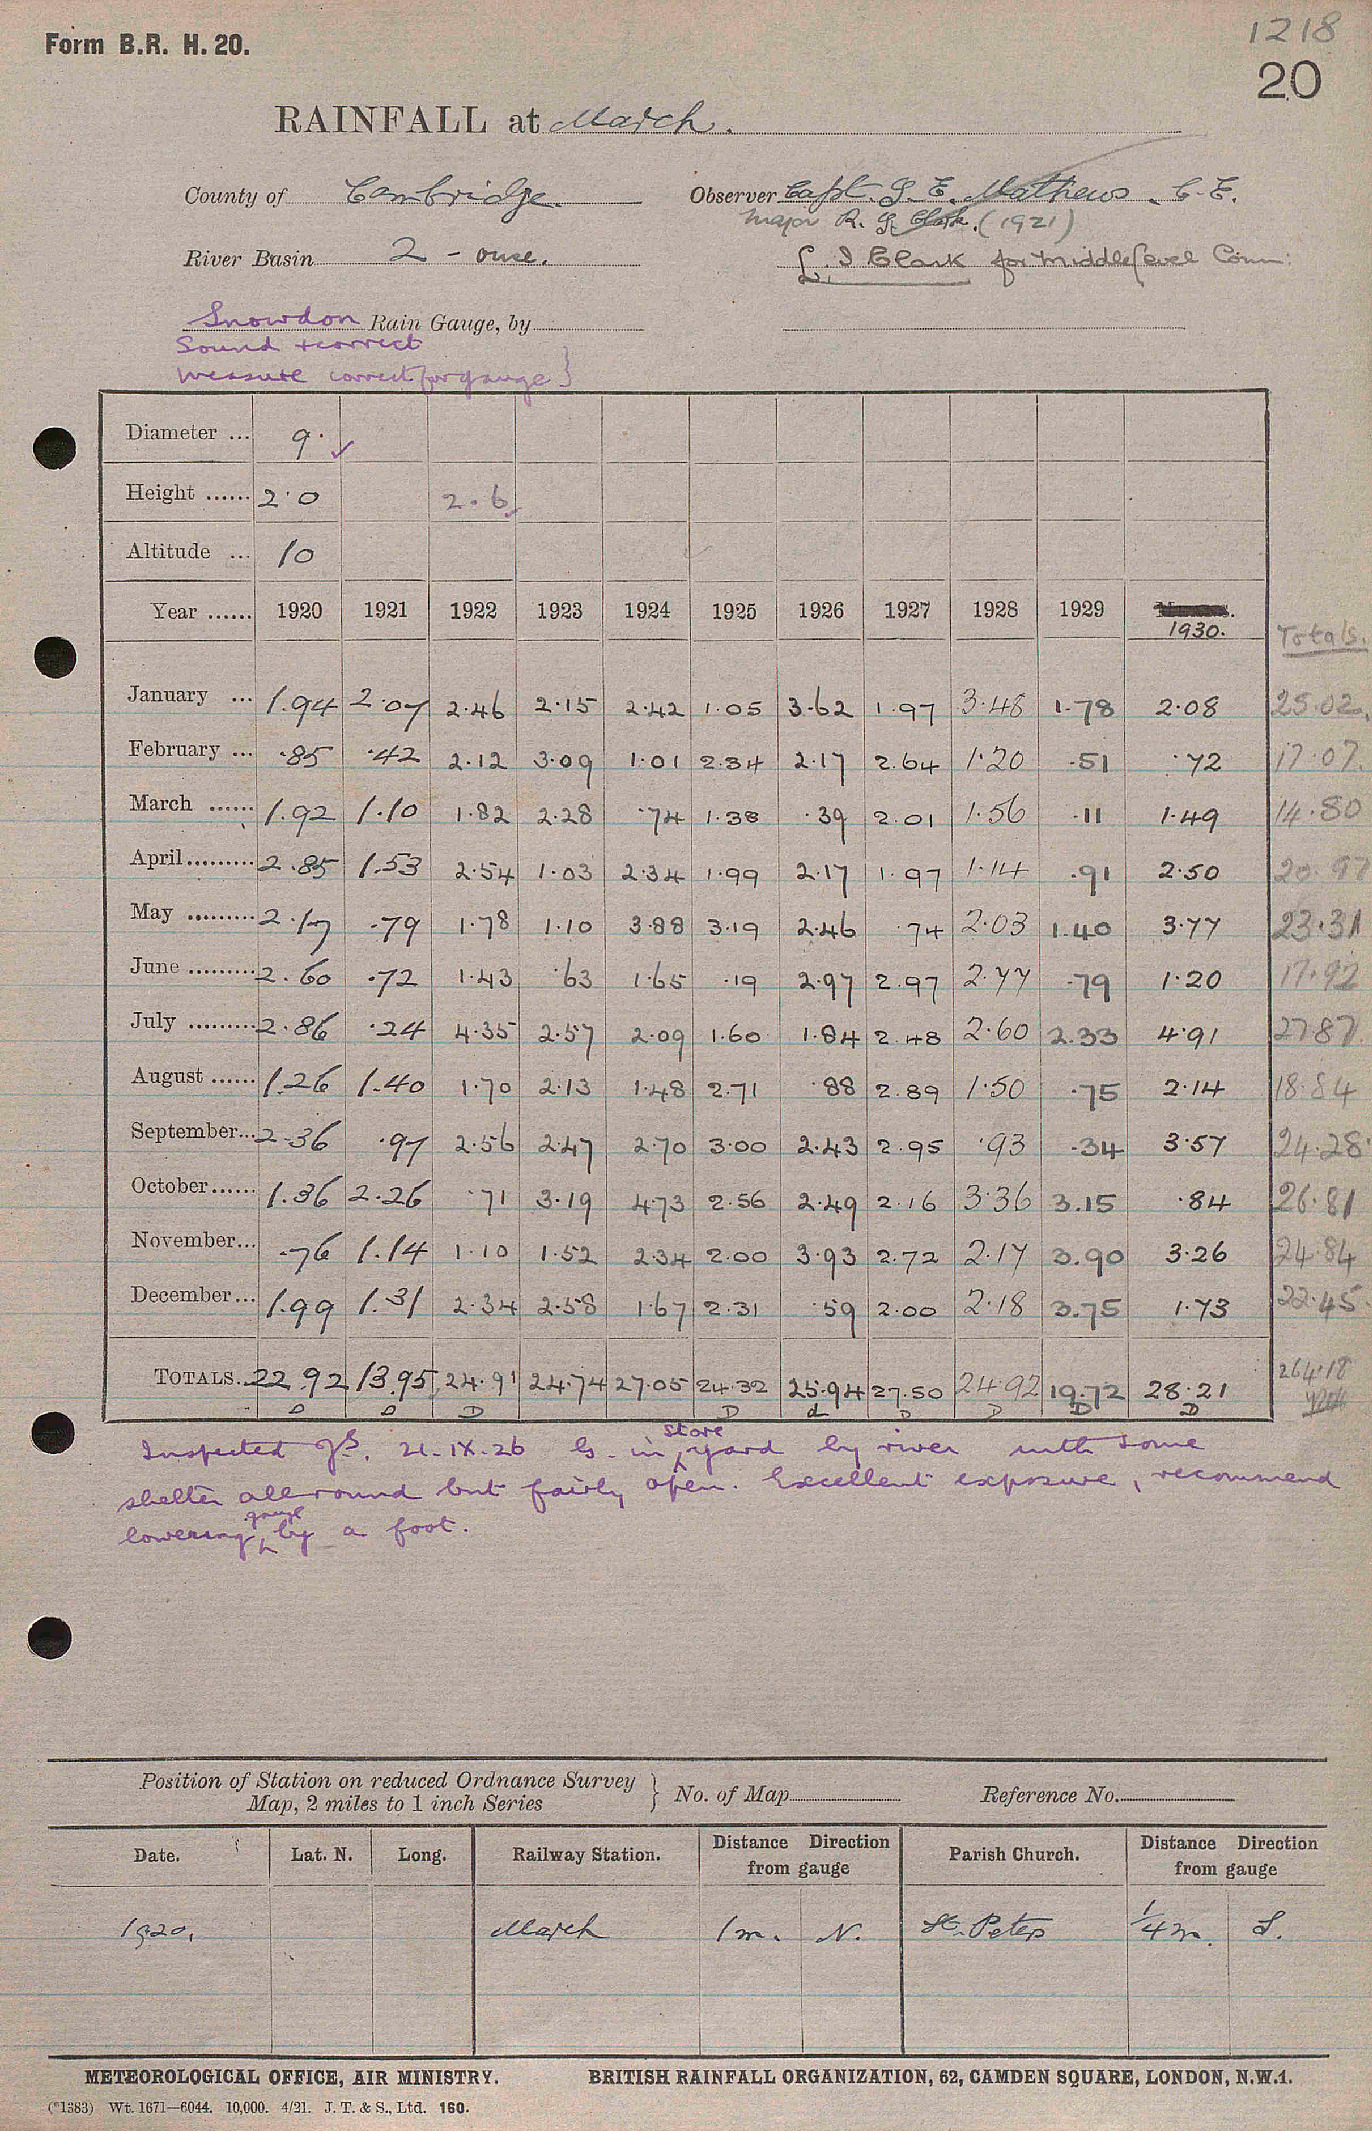 Form B.R. H. 20.
1218
20
RAINFALL at March.
County of Cambridge.
Observer Capt. G. E. Mathews. C. E.
Major R. G. Clark. (1921)
River Basin 2 - ouse.
L. I Clark for Middle Level Comm:
Snowdon Rain Gauge, by
Sound + correct
Measure correct for gauge }
Diameter ... 9.
Height ...... 2.0 2.6
Altitude ... 10
Year ...... 1920 1921 1922 1923 1924 1925 1926 1927 1928 1929 1930. Totals.
January ... 1.94 2.07 2.46 2.15 2.42 1.05 3.62 1.97 3.48 1.78 2.08 25.02.
February ... .85 .42 2.12 3.09 1.01 2.34 2.17 2.64 1.20 .51 .72 17.07.
March ...... 1.92 1.10 1.82 2.28 .74 1.38 .39 2.01 1.56 .11 1.49 14.80
April ......... 2.85 1.53 2.54 1.03 2.34 1.99 2.17 1.97 1.14 .91 2.50 20.97
May ......... 2.17 .79 1.78 1.10 3.88 3.19 2.46 .74 2.03 1.40 3.77 23.31
June ......... 2.60 .72 1.43 .63 1.65 .19 2.97 2.97 2.77 .79 1.20 17.92
July ......... 2.86 .24 4.35 2.57 2.09 1.60 1.84 2.48 2.60 2.33 4.91 27.87
August ...... 1.26 1.40 1.70 2.13 1.48 2.71 .88 2.89 1.50 .75 2.14 18.84
September... 2.36 .97 2.56 2.47 2.70 3.00 2.43 2.95 .93 .34 3.57 24.28
October...... 1.36 2.26 .71 3.19 4.73 2.56 2.49 2.16 3.36 3.15 .84 26.81
November... .76 1.14 1.10 1.52 2.34 2.00 3.93 2.72 2.17 3.90 3.26 24.84
December... 1.99 1.31 2.34 2.58 1.67 2.31 .59 2.00 2.18 3.75 1.73 22.45
TOTALS.. 22.92 13.95 24.91 24.74 27.05 24.32 25.94 27.50 24.92 19.72 28.21 264.18
D D D D d D D D D
Inspected 21.IX.26 G. in store yard by river with some
shelter all round but fairly open. Excellent exposure, recommend
lowering gauge by a foot.
Position of Station on reduced Ordnance Survey
Map, 2 miles to 1 inch Series } No. of Map Reference No.
Date. Lat. N. Long. Railway Station. Distance Direction from gauge Parish Church. Distance Direction from gauge
1920. March 1 m. N. St. Peters 1/4 m. S.
METEOROLOGICAL OFFICE, AIR MINISTRY. BRITISH RAINFALL ORGANIZATION, 62, CAMDEN SQUARE, LONDON, N.W.1.
(*1383) Wt. 1671—6044. 10,000. 4/21. J. T. & S., Ltd. 160.